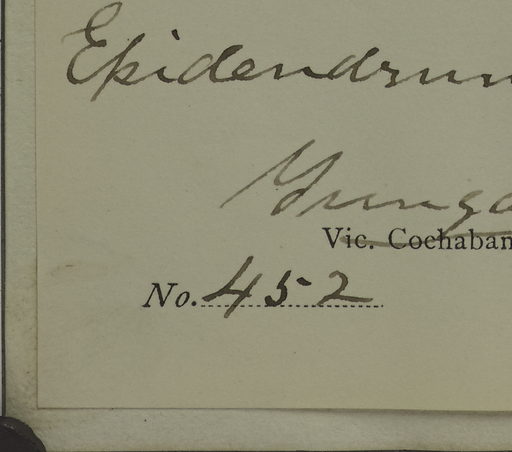 Epidendrum
Yunga
Vic. Cochaban
No. 452